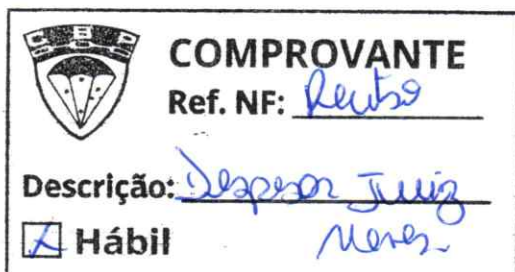 CBPq
COMPROVANTE
Ref. NF: Recibo
Descrição: Despesa Juiz
X Hábil Neves